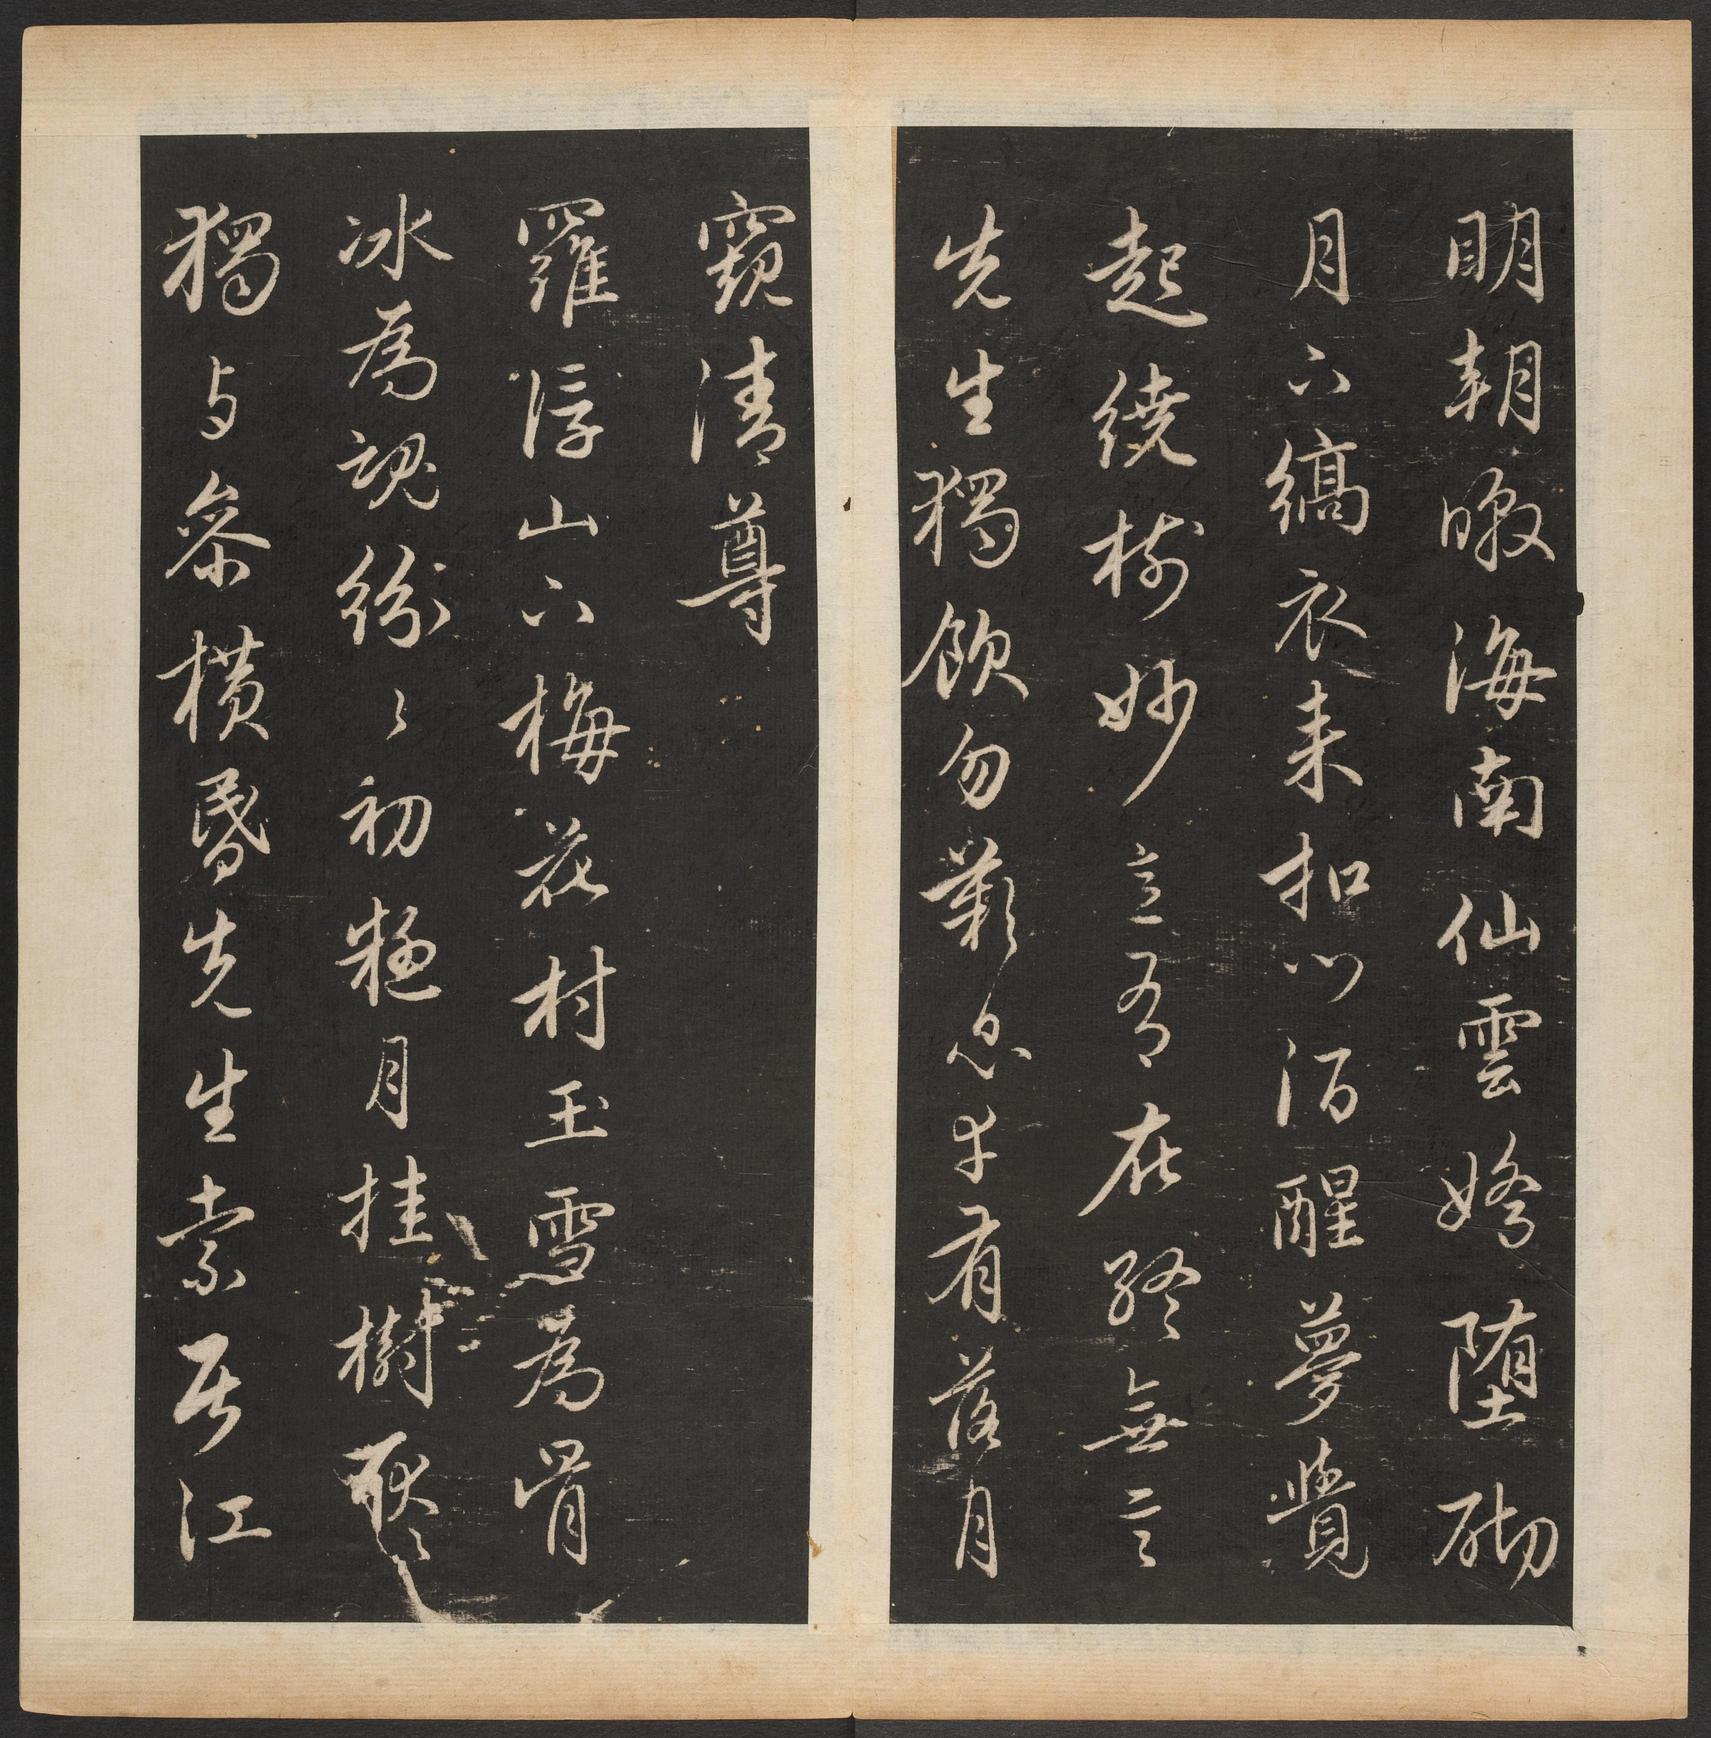 明朝暾海南仙雲嬌堕砌
月下縞衣来扣門酒醒夢覺
起繞樹妙意有在終無言
先生獨飲勿歎息幸有落月
窺清尊
羅浮山下梅花村玉雪為骨
冰為魂紛〻初疑月挂樹耿〻
獨与參横昏先生索居江